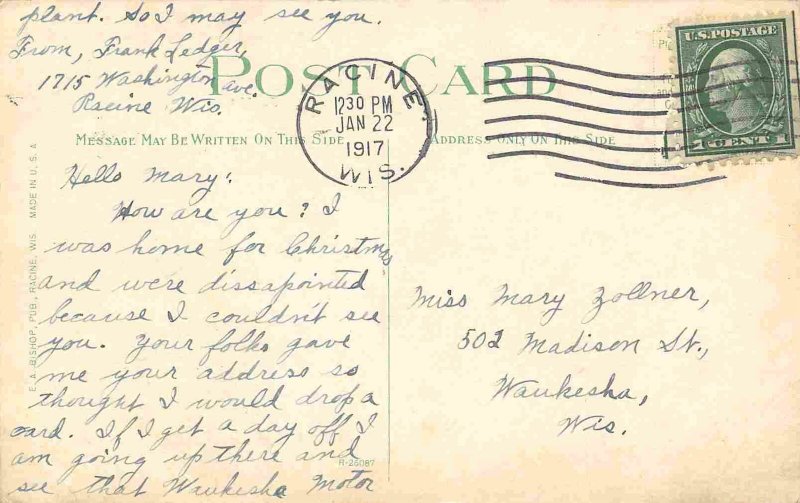 plant. So I may see you.
From, Frank Ledger,
1715 Washington ave.
Racine Wis.
POST CARD
MESSAGE MAY BE WRITTEN ON THIS SIDE
ADDRESS ONLY ON THIS SIDE
RACINE
1230 PM
JAN 22
1917
WIS.
U.S. POSTAGE
1 CENT 1
Hello Mary:
How are you? I
was home for Christmas
and were dissapointed
because I couldn't see
you. Your folks gave
me your address so
thought I would drop a
card. If I get a day off I
am going up there and
see that Waukesha Motor
Miss Mary Zollner,
502 Madison St.,
Waukesha,
Wis.
E. A. BISHOP, PUB., RACINE, WIS. MADE IN U. S. A.
R-26087